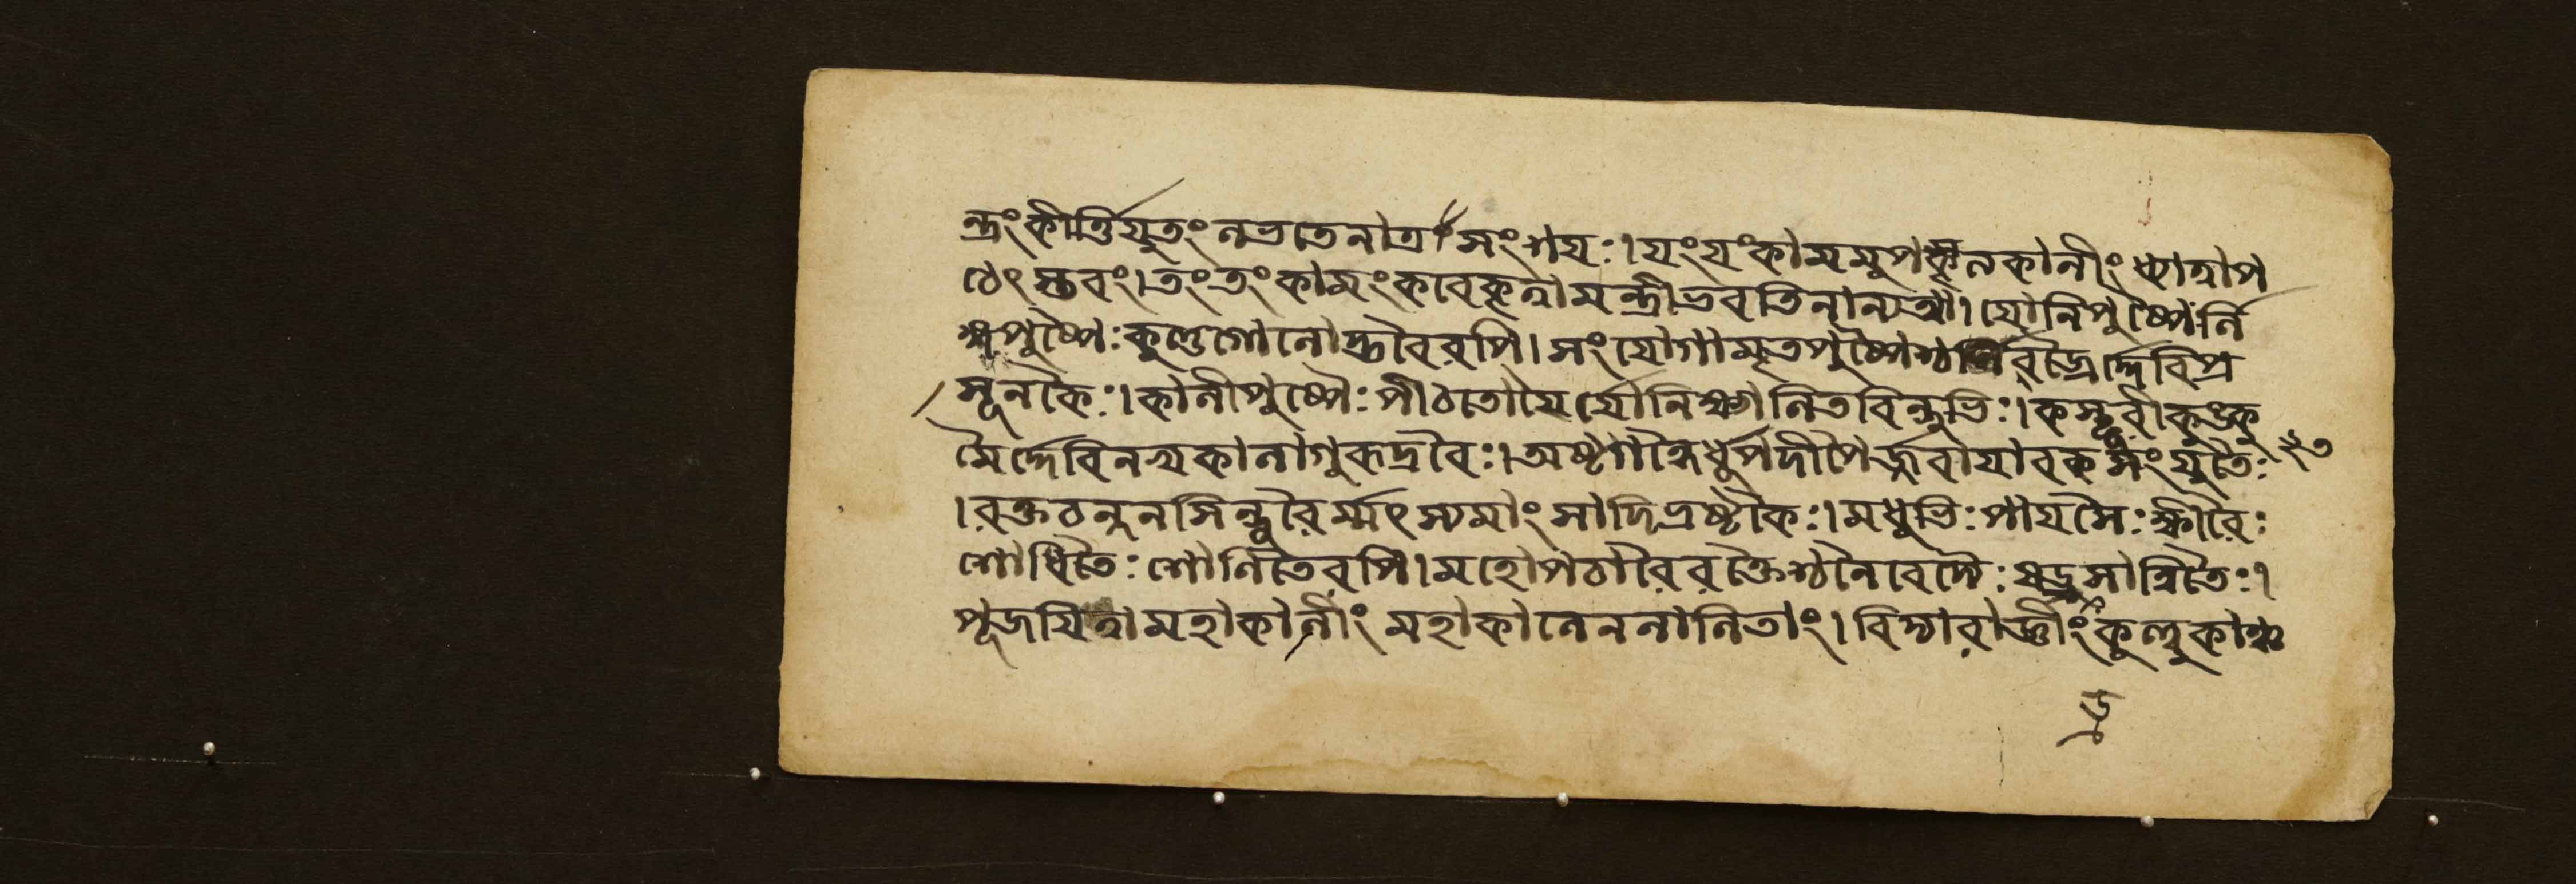 ন্দ্রং কীর্ত্তিযুতং লভতে নাত্র সংশয়ঃ । যং যং কামমুপস্কৃত্য কালীং ধ্যাত্বা প
ঠেৎ স্তবং । তং তং কামং করে কৃত্বা মন্ত্রী ভবতি নান্যথা । যোনিপুষ্পৈর্লি
ঙ্গপুষ্পৈঃ কুণ্ডগোলোদ্ভবৈরপি । সংযোগামৃতপুষ্পৈশ্চ র্দ্দেবিপ্র
সূনকৈঃ । কালীপুষ্পৈঃ পীঠতোয়ৈর্যোনিক্ষালিতবিন্দুভিঃ । কস্তূরীকুঙ্কু
মৈর্দ্দেবি নখকালাগুরুদ্রবৈঃ । অষ্টগন্ধৈর্ধূপদীপৈর্জবাযাবকসংযুতৈঃ
। রক্তচন্দনসিন্দূরৈর্ম্মৎস্যমাংসাদিভূষণকৈঃ । মধুভিঃ পায়সৈঃ ক্ষীরৈঃ
শোধিতৈঃ শোণিতৈরপি । মহোপচারৈ রক্তৈশ্চ নৈবেদ্যৈঃ ষড্রসান্বিতৈঃ ।
পূজয়িত্বা মহাকালীং মহাকালেন লালিতাং । বিদ্যারাজ্ঞীং কুল্লুকাঞ্চ
২৩